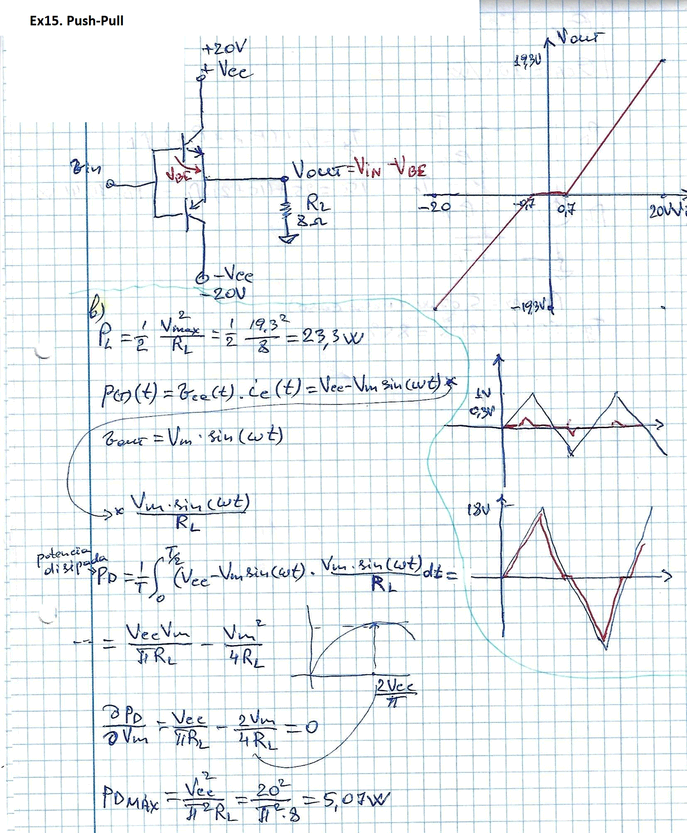 Ex15. Push-Pull
+20V
+ Vcc
Vout
19,3V
vin
VBE
Vout=VIN-VBE
RL
8Ω
-20
-0,7
0,7
20V
-Vcc
-20V
-19,3V
b)
PL = 1/2 Vmax²/RL = 1/2 19,3²/8 = 23,3W
P(τ)(t) = vce(t) . ic(t) = Vcc-Vm sin(ωt)*
1V
0,3V
vout = Vm · sin(ωt)
* Vm·sin(ωt)/RL
18V
potencia
disipada
PD = 1/T ∫₀^T/2 (Vcc-Vmsin(ωt) · Vm·sin(ωt)/RL dt =
-- = VccVm/πRL - Vm²/4RL
2Vcc/π
∂PD/∂Vm = Vcc/πRL - 2Vm/4RL = 0
PDMÁX = Vcc²/π²RL = 20²/π²·8 = 5,07W